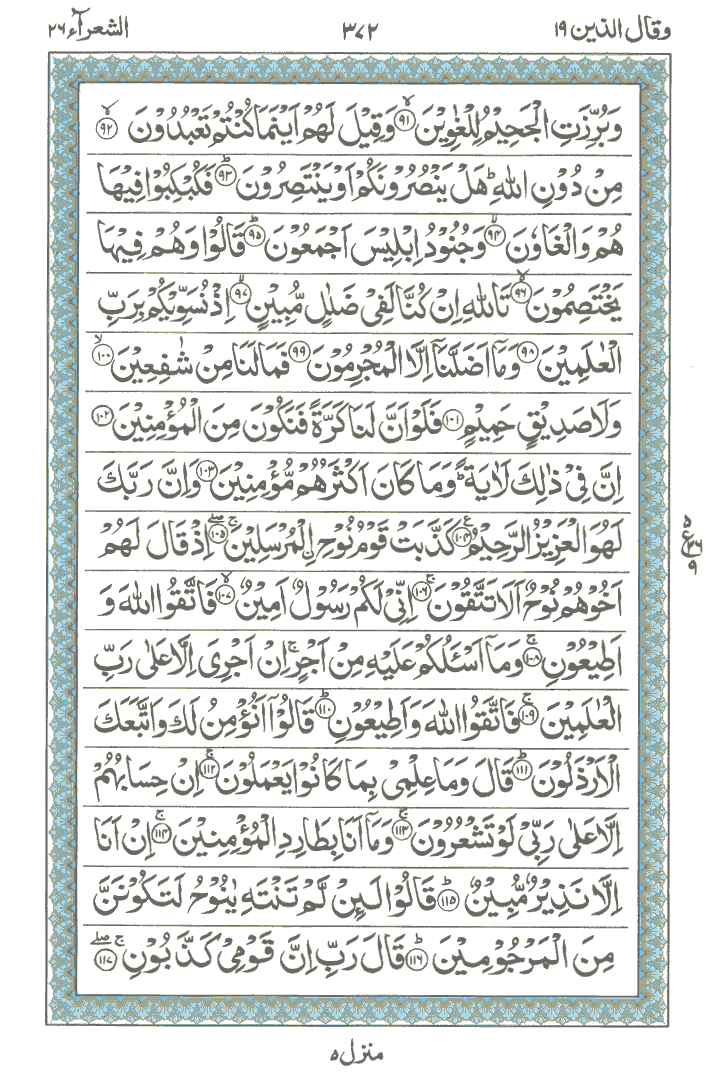 وقال الذين ١٩ ٣٧٢ الشعرآء ٢٦
وَبُرِّزَتِ الْجَحِيْمُ لِلْغٰوِيْنَ ۙ﴿۹۱﴾ وَقِيْلَ لَهُمْ اَيْنَمَا كُنْتُمْ تَعْبُدُوْنَ ۙ﴿۹۲﴾
مِنْ دُوْنِ اللّٰهِ ؕ هَلْ يَنْصُرُوْنَكُمْ اَوْ يَنْتَصِرُوْنَ ؕ﴿۹۳﴾ فَكُبْكِبُوْا فِيْهَا
هُمْ وَالْغَاوٗنَ ۙ﴿۹۴﴾ وَجُنُوْدُ اِبْلِيْسَ اَجْمَعُوْنَ ؕ﴿۹۵﴾ قَالُوْا وَهُمْ فِيْهَا
يَخْتَصِمُوْنَ ۙ﴿۹۶﴾ تَاللّٰهِ اِنْ كُنَّا لَفِيْ ضَلٰلٍ مُّبِيْنٍ ۙ﴿۹۷﴾ اِذْ نُسَوِّيْكُمْ بِرَبِّ
الْعٰلَمِيْنَ ﴿۹۸﴾ وَمَاۤ اَضَلَّنَاۤ اِلَّا الْمُجْرِمُوْنَ ﴿۹۹﴾ فَمَا لَنَا مِنْ شٰفِعِيْنَ ۙ﴿۱۰۰﴾
وَلَا صَدِيْقٍ حَمِيْمٍ ﴿۱۰۱﴾ فَلَوْ اَنَّ لَنَا كَرَّةً فَنَكُوْنَ مِنَ الْمُؤْمِنِيْنَ ﴿۱۰۲﴾
اِنَّ فِيْ ذٰلِكَ لَاٰيَةً ؕ وَمَا كَانَ اَكْثَرُهُمْ مُّؤْمِنِيْنَ ﴿۱۰۳﴾ وَاِنَّ رَبَّكَ
لَهُوَ الْعَزِيْزُ الرَّحِيْمُ ﴿۱۰۴﴾ كَذَّبَتْ قَوْمُ نُوْحِ ۨالْمُرْسَلِيْنَ ۚۖ﴿۱۰۵﴾ اِذْ قَالَ لَهُمْ
اَخُوْهُمْ نُوْحٌ اَلَا تَتَّقُوْنَ ۚ﴿۱۰۶﴾ اِنِّيْ لَكُمْ رَسُوْلٌ اَمِيْنٌ ۙ﴿۱۰۷﴾ فَاتَّقُوا اللّٰهَ وَ
اَطِيْعُوْنِ ۚ﴿۱۰۸﴾ وَمَاۤ اَسْـَٔلُكُمْ عَلَيْهِ مِنْ اَجْرٍ ۚ اِنْ اَجْرِيَ اِلَّا عَلٰى رَبِّ
الْعٰلَمِيْنَ ۚ﴿۱۰۹﴾ فَاتَّقُوا اللّٰهَ وَاَطِيْعُوْنِ ؕ﴿۱۱۰﴾ قَالُوْۤا اَنُؤْمِنُ لَكَ وَاتَّبَعَكَ
الْاَرْذَلُوْنَ ؕ﴿۱۱۱﴾ قَالَ وَمَا عِلْمِيْ بِمَا كَانُوْا يَعْمَلُوْنَ ۚ﴿۱۱۲﴾ اِنْ حِسَابُهُمْ
اِلَّا عَلٰى رَبِّيْ لَوْ تَشْعُرُوْنَ ۚ﴿۱۱۳﴾ وَمَاۤ اَنَا بِطَارِدِ الْمُؤْمِنِيْنَ ۚ﴿۱۱۴﴾ اِنْ اَنَا
اِلَّا نَذِيْرٌ مُّبِيْنٌ ؕ﴿۱۱۵﴾ قَالُوْا لَىِٕنْ لَّمْ تَنْتَهِ يٰنُوْحُ لَتَكُوْنَنَّ
مِنَ الْمَرْجُوْمِيْنَ ؕ﴿۱۱۶﴾ قَالَ رَبِّ اِنَّ قَوْمِيْ كَذَّبُوْنِ ۚۖ﴿۱۱۷﴾
منزل ٥